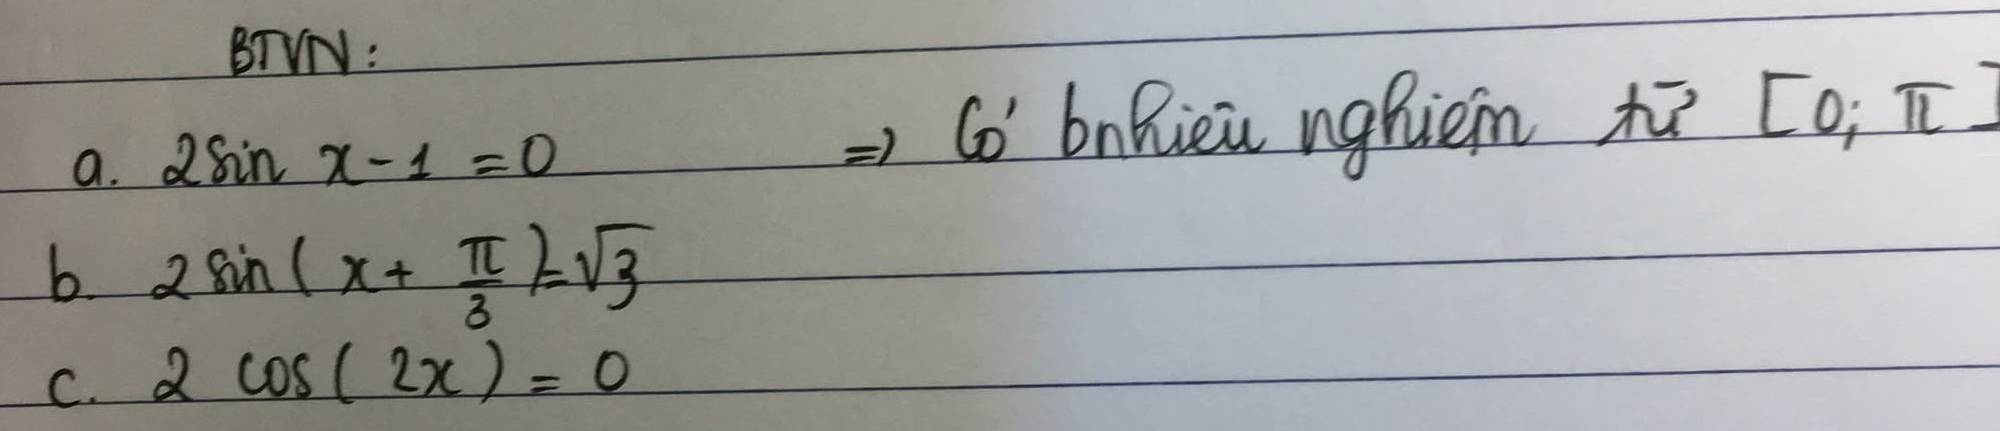 BTVN:
a. 2sin x - 1 = 0 => Có bnhiêu nghiệm từ [0; π]
b. 2 sin( x + π/3 ) = √3
c. 2 cos( 2x ) = 0